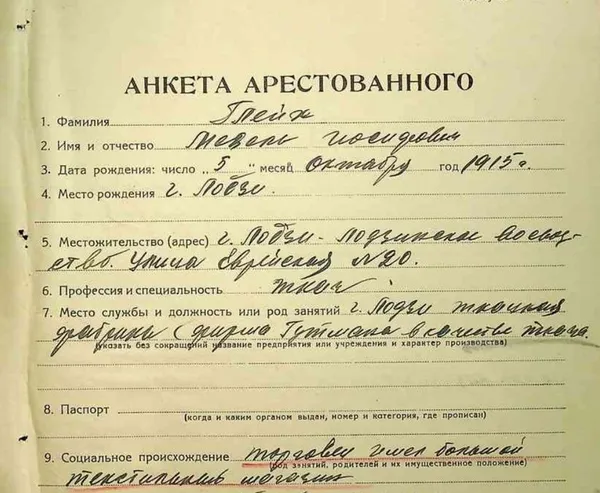 АНКЕТА АРЕСТОВАННОГО
1. Фамилия Глейх
2. Имя и отчество Мендель Иосифович
3. Дата рождения: число „5" месяц октября год 1915 г.
4. Место рождения г. Лодзи.
5. Местожительство (адрес) г. Лодзи - Лодзинское воевод-
ство. Улица Еврейская №20.
6. Профессия и специальность ткач
7. Место службы и должность или род занятий г. Лодзи ткацкая
фабрика (фирма Гутмана в качестве ткача.
(указать без сокращений название предприятия или учреждения и характер производства)
8. Паспорт
(когда и каким органом выдан, номер и категория, где прописан)
9. Социальное происхождение торговец имел большой
(род занятий, родителей и их имущественное положение)
текстильный магазин